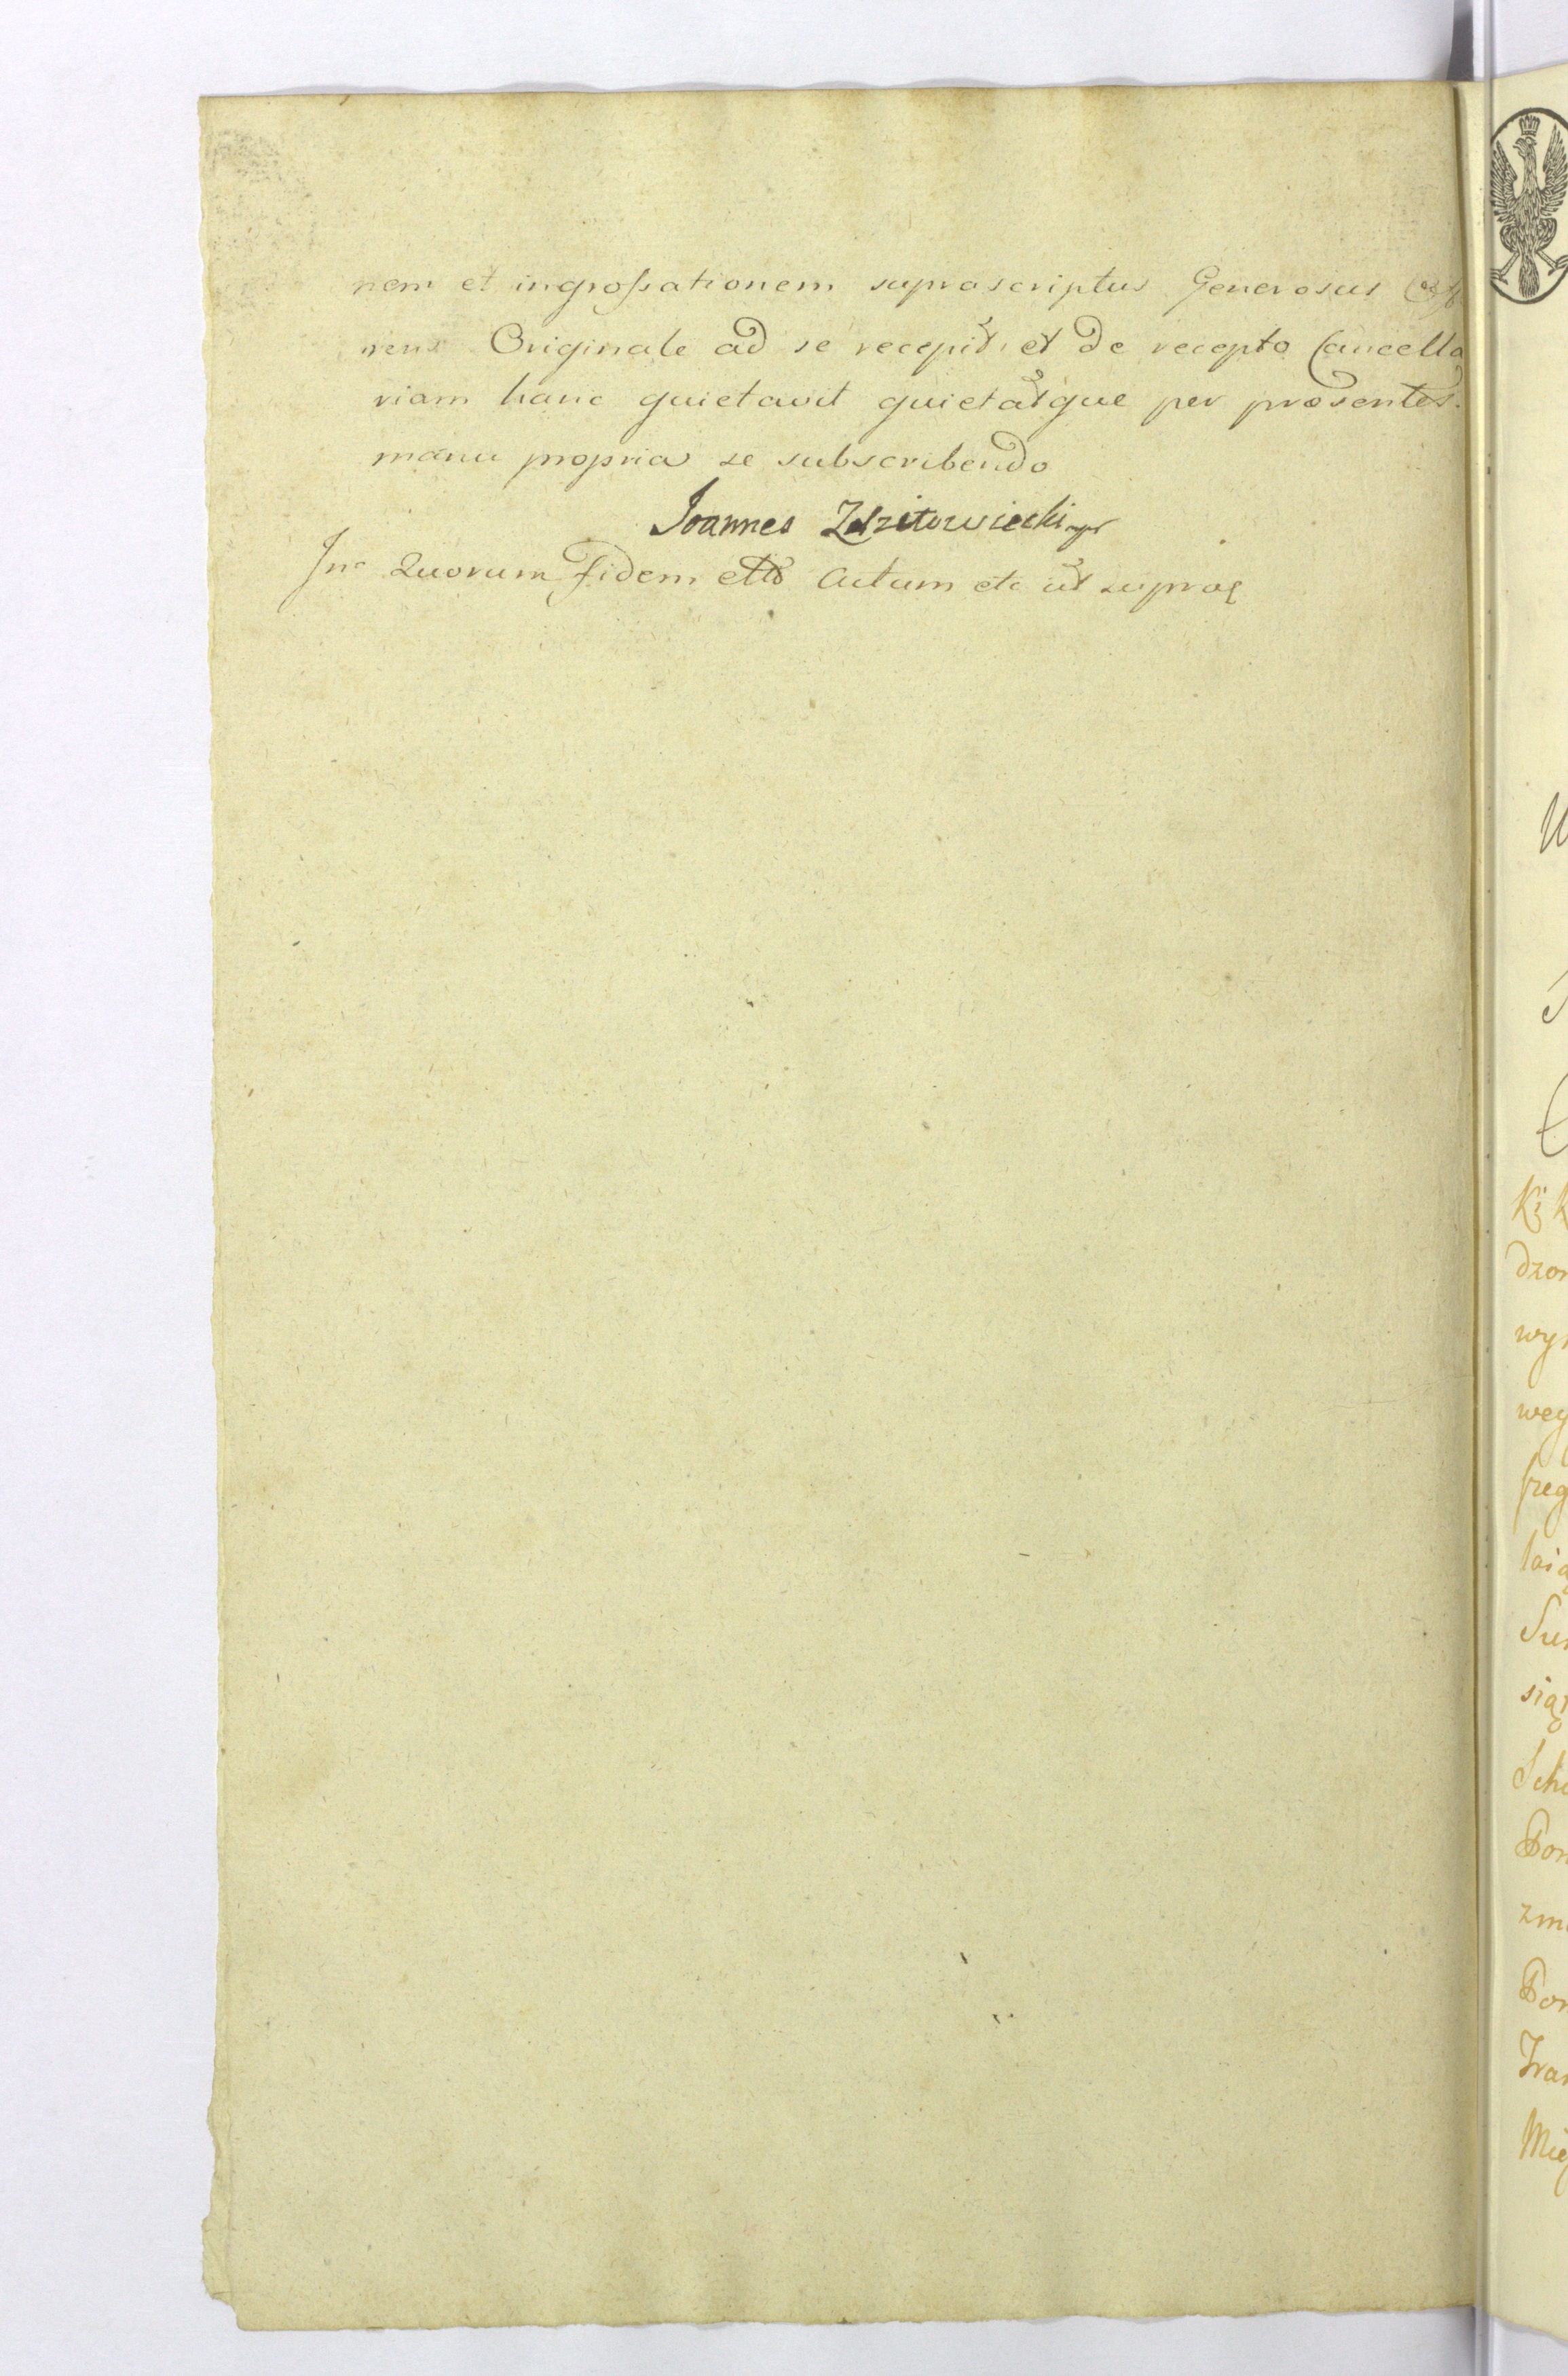 nem et ingrossationem suprascriptus Generosus Offe
rens Originale ad se recepit et de recepto Cancella
riam hanc quietavit quietatque per præsentes.
manu propria se subscribendo
Joannes Zdzitowiecki mp
In Quorum fidem ettc Actum etc ut supra
Ki k
dzon
wyr
weg
freg
Sum
siąt
Scho
Pon
zmi
Pon
Tran
Mie